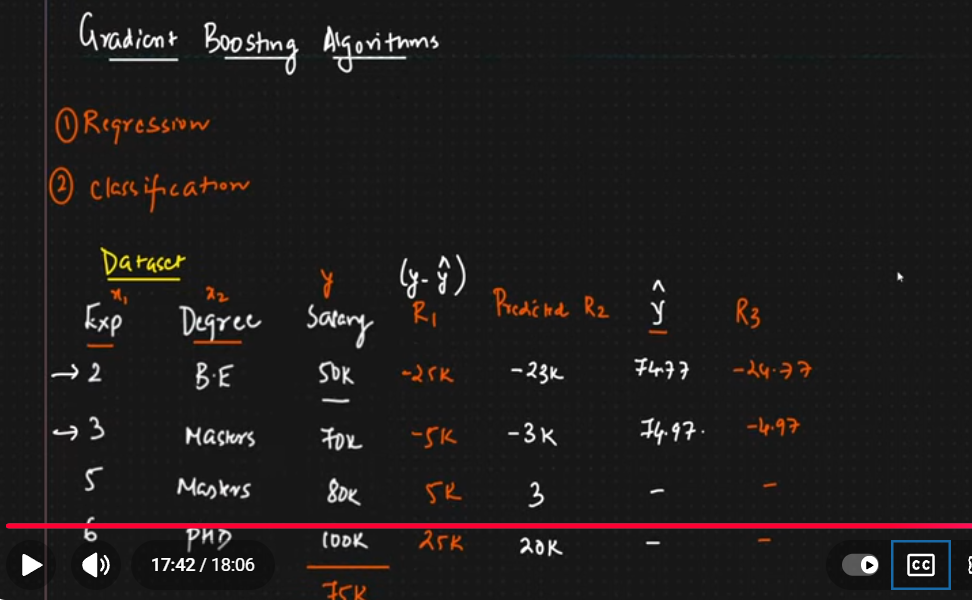 Gradient Boosting Algorithms
① Regression
② Classification
Dataset
x₁ x₂ y (y-ŷ)
Exp Degree Salary R₁ Predicted R₂ ŷ R3
→ 2 B.E 50K -25K -23K 74.77 -24.77
→ 3 Masters 70K -5K -3K 74.97. -4.97
5 Masters 80K 5K 3 - -
6 PHD 100K 25K 20K - -
75K
17:42 / 18:06
CC